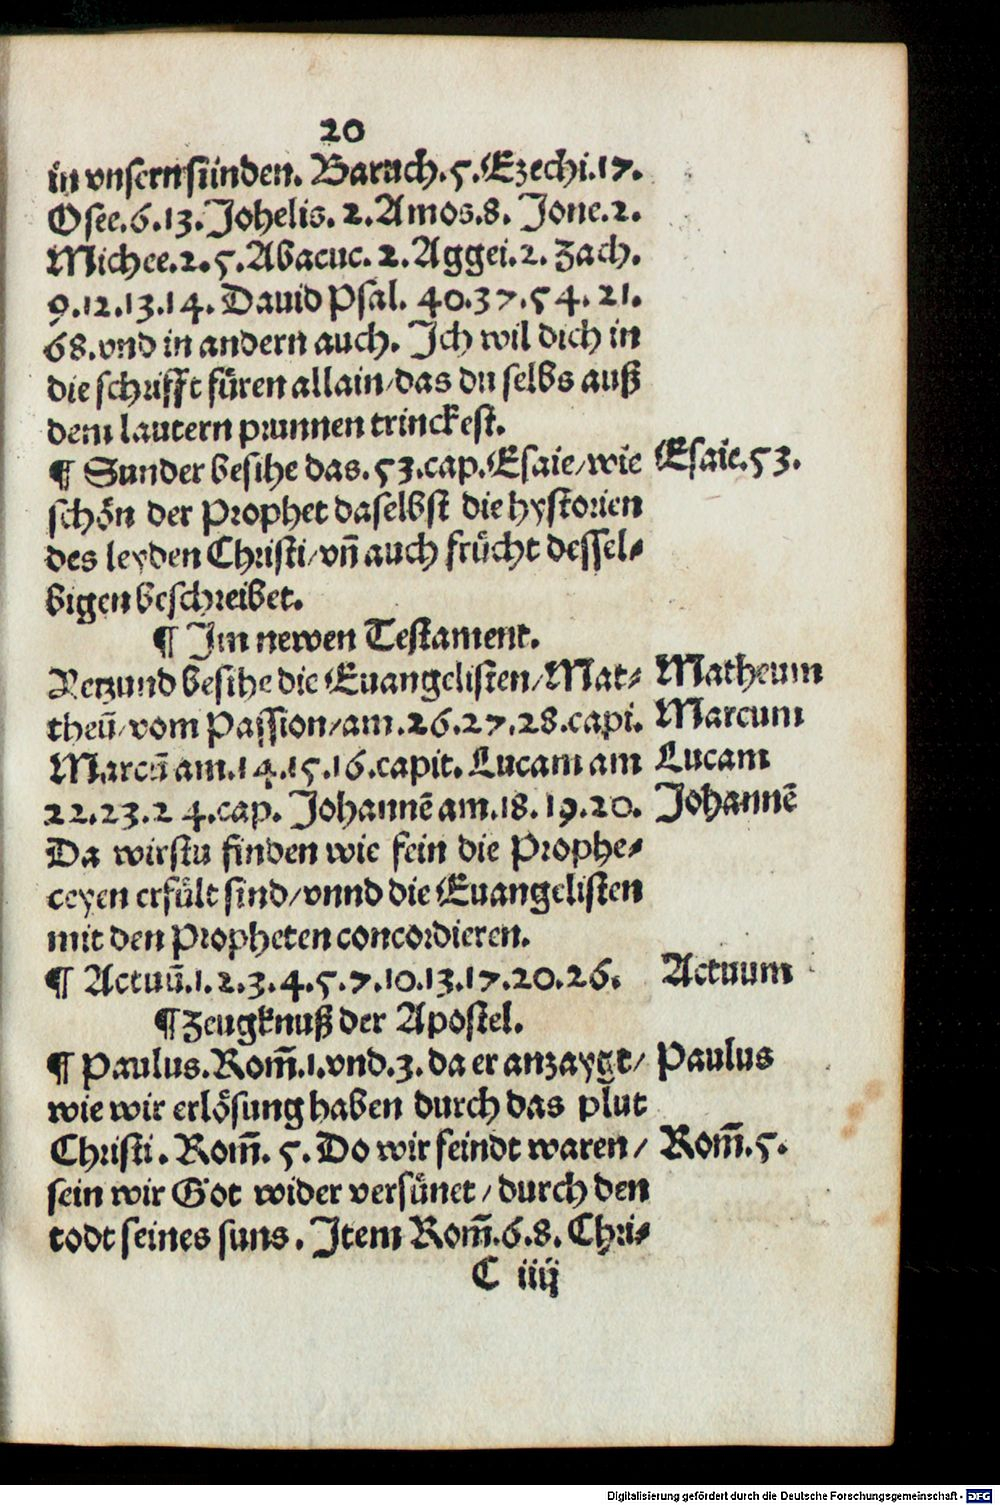 20
in vnsern sünden. Baruch.5.Ezechi.17.
Osee.6.13.Johelis.2.Amos.8. Jone.2.
Michee.2.5.Abacuc.2.Aggei.2. Zach.
9.12.13.14. Dauid Psal. 40.37.54.21.
68.vnd in andern auch. Jch wil dich in
die schrifft füren allain/das du selbs auß
dem lautern prunnen trinckest.
¶ Sunder besihe das.53.cap.Esaie/wie Esaie.53.
schön der Prophet daselbst die hystorien
des leyden Christi/vñ auch frücht dessel-
bigen beschreibet.
¶ Jm newen Testament.
Yetzund besihe die Euangelisten/Mat- Matheum
theũ/vom Passion/am.26.27.28.capi. Marcum
Marcũ am.14.15.16.capit. Lucam am Lucam
22.23.24.cap. Johannẽ am.18.19.20. Johannẽ
Da wirstu finden wie fein die Prophe-
ceyen erfült sind/vnnd die Euangelisten
mit den Propheten concordieren.
¶ Actuũ.1.2.3.4.5.7.10.13.17.20.26. Actuum
¶ Zeugknuß der Apostel.
¶ Paulus.Rom̃.1.vnd.3. da er anzaygt/ Paulus
wie wir erlösung haben durch das plut
Christi. Rom̃. 5. Do wir feindt waren/ Rom̃.5.
sein wir Got wider versünet/durch den
todt seines suns. Jtem Rom̃.6.8. Chri-
C iiij
Digitalisierung gefördert durch die Deutsche Forschungsgemeinschaft - DFG